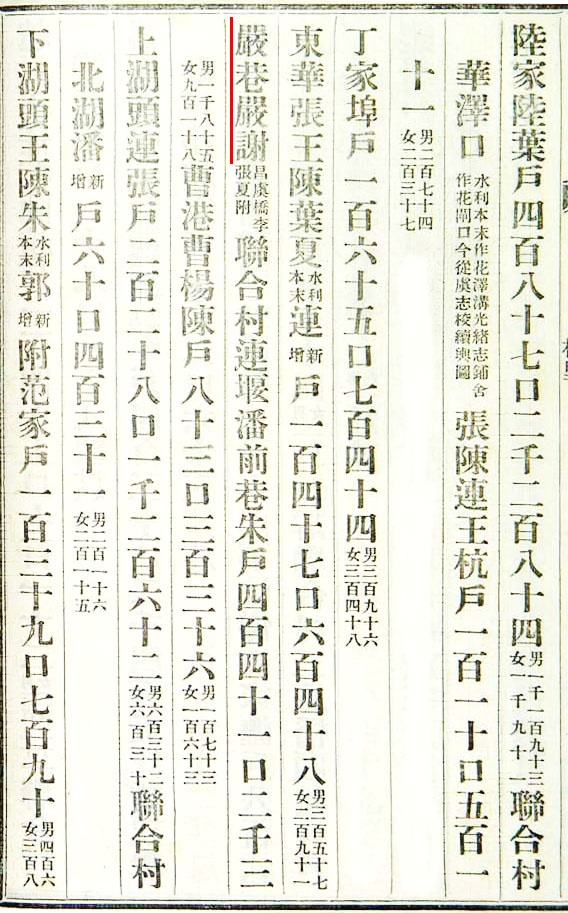 陸家陸葉戶四百八十七口二千二百八十四男一千一百九十三女一千九十一聯合村
華澤口水利本末作花澤溝光緒志鋪舍作花閘口今從虞志校續輿圖張陳連王杭戶一百一十口五百一
十一男二百七十四女二百三十七
丁家埠戶一百六十五口七百四十四男三百九十六女三百四十八
東華張王陳葉夏水利本末連新增戶一百四十七口六百四十八男三百五十七女二百九十一
嚴巷嚴謝昌虞橋李張夏附聯合村連堰潘前巷朱戶四百四十一口二千三
男一千八十五女九百一十八曹港曹楊陳戶八十三口三百三十六男一百七十三女一百六十三
上湖頭連張戶二百二十八口一千二百六十二男六百三十二女六百三十聯合村
北湖潘新增戶六十口四百三十一男二百一十六女二百一十五
下湖頭王陳朱水利本末郭新增附范家戶一百三十九口七百九十男四百六女三百八